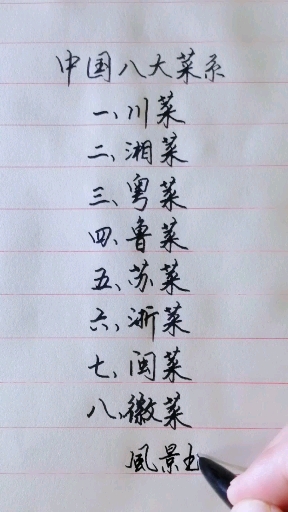 中国八大菜系
一、川菜
二、湘菜
三、粤菜
四、鲁菜
五、苏菜
六、浙菜
七、闽菜
八、徽菜
風景